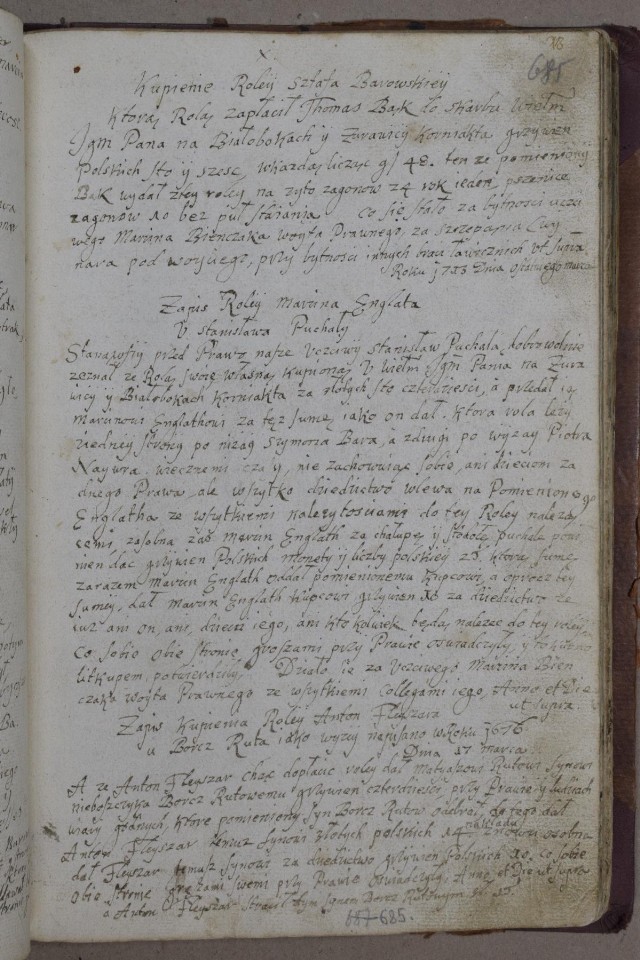 685
Kupienie Roley Szłata Barowskiey
Ktorą Rolą zapłacił Thomas Bąk do skarbu Wielm
Jgm Pana na Białobokach y Zurawicy Korniakta grzywien
Polskich sto y szesc, w kazdą licząc gł 48. ten ze pomieniony
Bąk wydał zey roley na zyto zagonow 24 rok ieden, pszenice
zagonow 10 bez puł starania Co się stało za bytnosci uczci
wego Marcina Bienczaka woyta Prawnego, za Szczepana
pod woyciego, przy bytnosci innych braci ławicznich vt supra
Roku 1733 Dnia osmnastego marca
Zapis Roley Marcina Englata
V Stanisława Puchały
Stanąwszy przed Prawo nasze Vczciwy Stanisław Puchała, dobrowolnie
zeznał ze Rolą swoię własną kupioną V Wielm Jgm Pana na Zura
wicy y Białobokach Korniakta za złotych sto czterdziesci, a przedał ią
Marcinowi Englathowi za też sumę iako on dał. Ktora rola lezy
zIedney strony po niząg Szymona Bara, a zdrugi po wyzay Piotra
Naywra. wiecznemi czasy, nie zachowuiąc sobie, ani dzieciom za
dnego Prawa, ale wszytko dziedzictwo wlewa na Pomienionego
Englatha ze wszytkiemi nalezytosciami do tey Roley nalezą
cemi, zasobna zas Marcin Englath za chałupę y stodołę Puchale powi
nien dac grzywien Polskich monety y liczby polskiey 23. Ktorą sumę
zarazem Marcin Englath oddał pomienionemu Kupcowi, a oprocz tey
sumey, dał Marcin Englath Kupcowi grzywien 10 za dziedzictwo ze
iuz ani on, ani, dzieci iego, ani kto kolwiek będą nalizec do tey roley
co sobie obie stronie groszami przy Prawie oswiadczyły, y to
litkupem potwierdziły. Działo się za Vczciwego Marcina Bien
czaka woyta Prawnego ze wszytkiemi Collegami iego, Anno et Die
ut supra.
Zapis Kupienia Roley Anton Fleyszara
u Borcz Ruta iako wyzy napisano w Roku 1676
Dnia 17 marca
A ze Anton Fleyszar chcąc dopłacic roley dał Matyaszowi Rutowi synowi
nieboszczyka Borcz Rutowemu grzywien czterdziesci, przy Prawie y ludziach
wiary godnych, ktore pomieniony syn Borcz Rutow odebrał, do tego dał
Anton Fleyszar temuz synowi złotych polskich 14 nakładu znowu osobna
dał Fleyszar temusz synowi za dziedzictwo grzywien Polskich 10. co sobie
obie stronie groszami swemi przy Prawie oswiadczyły, Anno et Die ut supra
a Anton Fleyszar strawił tym synem Borcz Rutowym
687 685.